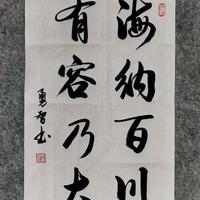 海纳百川
有容乃大
勇智书